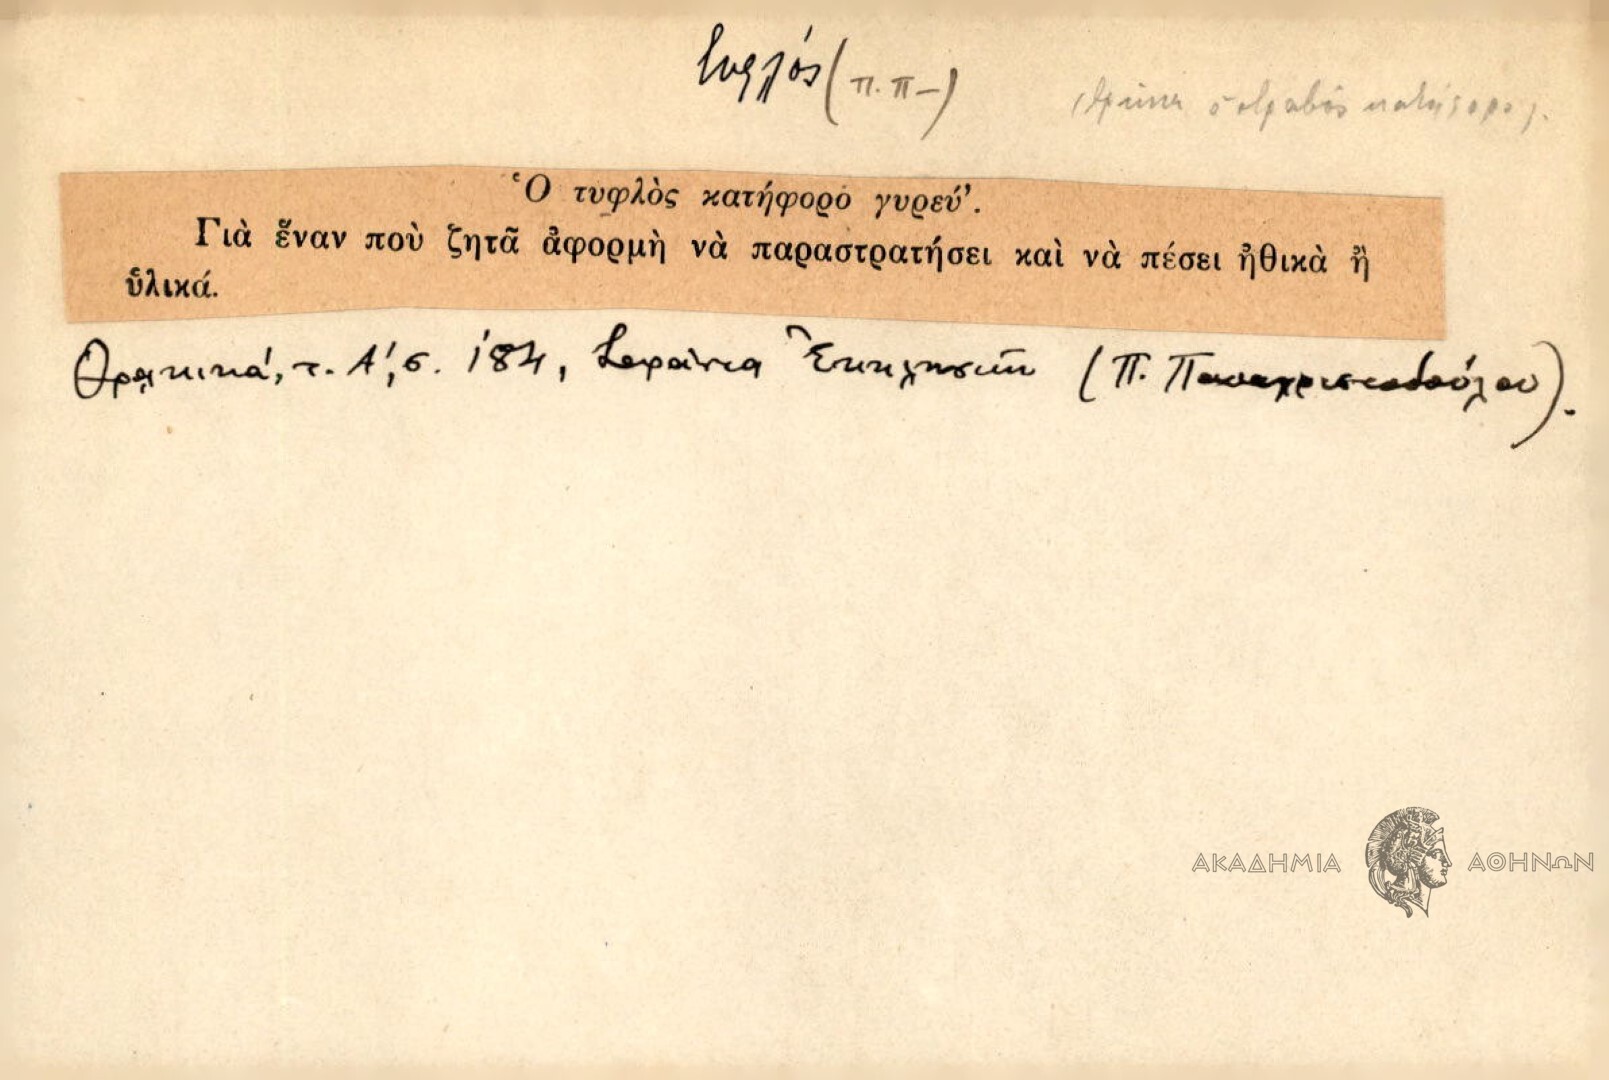 Τυφλός (π. π—)
Ὁ τυφλὸς κατήφορο γυρεύ'.
Γιὰ ἕναν ποὺ ζητᾶ ἀφορμὴ νὰ παραστρατήσει καὶ νὰ πέσει ἠθικὰ ἢ
ὑλικά.
Θρακικά, τ. Α', σ. 184, Σαράντα Ἐκκλησιῶν (Π. Παπαχριστοδούλου).
ΑΚΑΔΗΜΙΑ ΑΘΗΝΩΝ